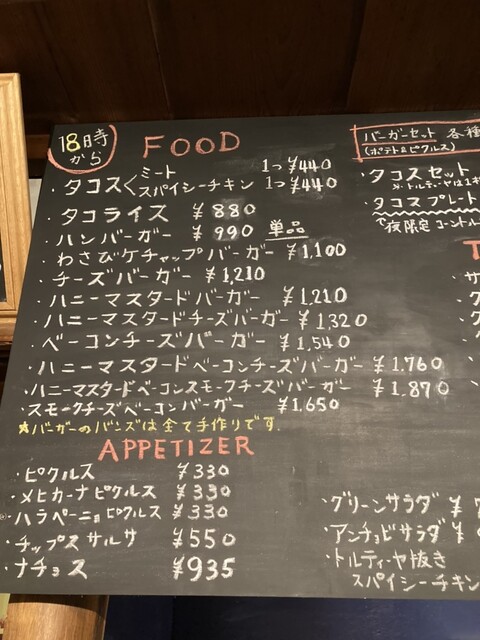 18時から
FOOD
・タコス＜ミート 1つ ¥440
スパイシーチキン 1つ ¥440
・タコライス ¥880
・ハンバーガー ¥990 単品
・わさびケチャップバーガー ¥1,100
・チーズバーガー ¥1,210
・ハニーマスタードバーガー ¥1,210
・ハニーマスタードチーズバーガー ¥1,320
・ベーコンチーズバーガー ¥1,540
・ハニーマスタードベーコンチーズバーガー ¥1,760
・ハニーマスタードベーコンスモークチーズバーガー ¥1,870
・スモークチーズベーコンバーガー ¥1,650
☆バーガーのバンズは全て手作りです。
APPETIZER
・ピクルス ¥330
・メヒカーナピクルス ¥330
・ハラペーニョピクルス ¥330
・チップスサルサ ¥550
・ナチョス ¥935
バーガーセット 各種
(ポテト&ピクルス)
・タコスセット
・タコスプレート
・グリーンサラダ
・アンチョビサラダ ¥
・トルティーヤ抜き
スパイシーチキン